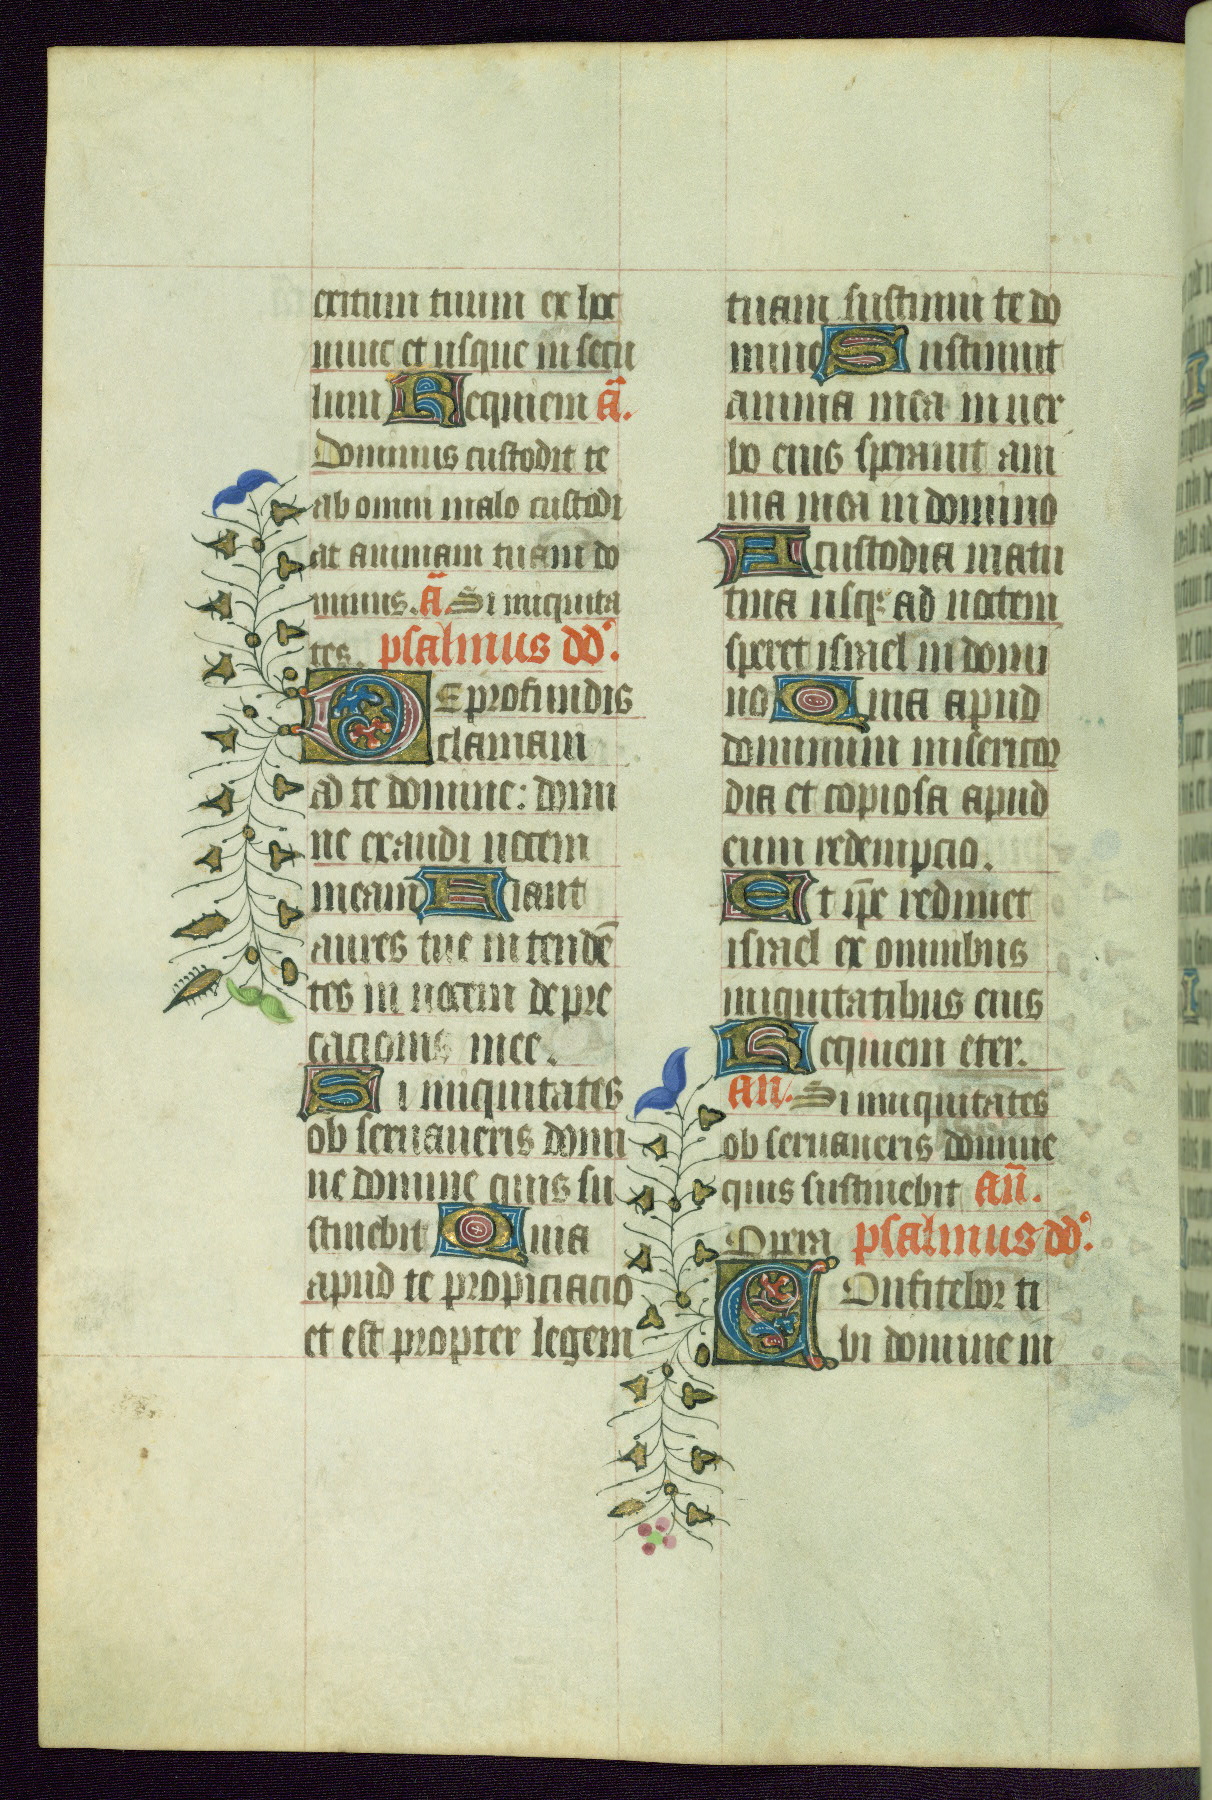 exitum tuum ex hoc
nunc et usque in secu
lum Requiem ā.
Dominus custodit te
ab omni malo custodi
at animam tuam do
minus. ā. Si iniquita
tes. psalmus dd̾.
De profundis
clamaui
ad te domine: domi
ne exaudi uocem
meam Fiant
aures tue intendē
tes in uocem depre
cacionis mee.
Si iniquitates
ob seruaueris domi
ne domine quis su
stinebit Quia
apud te propiciacio
et est propter legem
tuam sustinui te do
mine Sustinuit
anima mea in uer
bo eius sperauit ani
ma mea in domino
A custodia matu
tina usq; ad noctem
speret israel in domi
no Quia apud
dominum misericor
dia et copiosa apud
eum redempcio.
Et ip̄e redimet
israel ex omnibus
iniquitatibus eius
Requiem eter.
an. Si iniquitates
ob seruaueris domine
quis sustinebit an̄.
Opera psalmus dd̾.
Confitebor ti
bi domine in